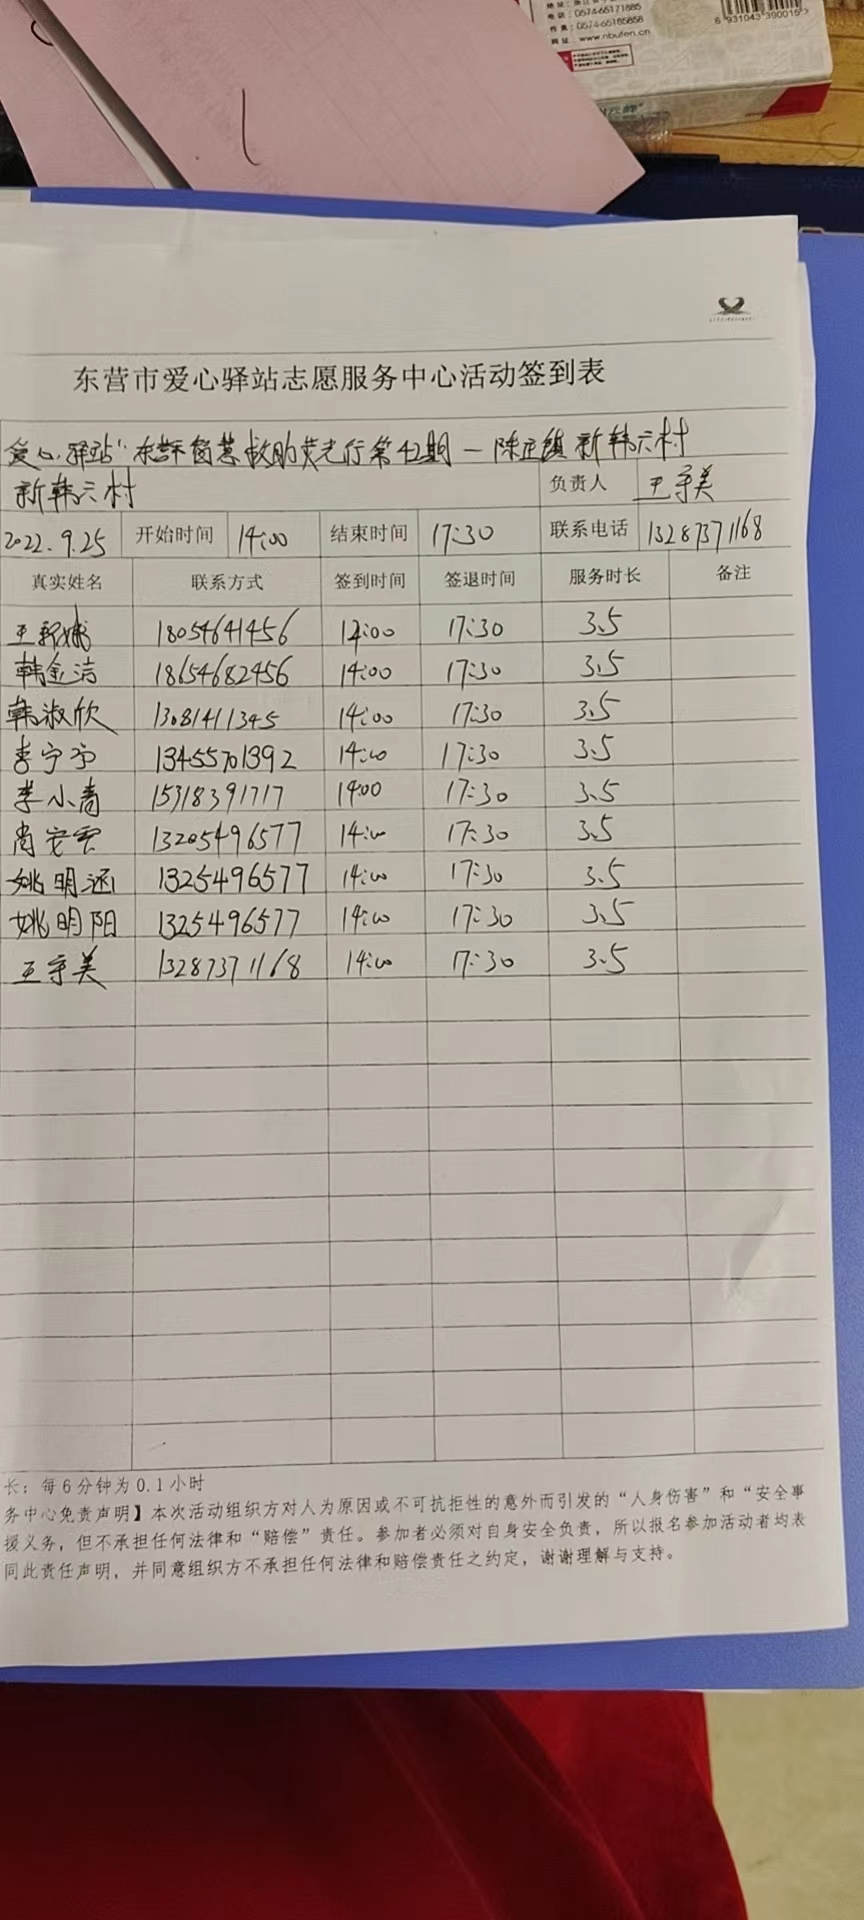 电话：0574-65171885
传真：0574-65185858
网址：www.nbufen.cn
6 931043 390015
东营市爱心驿站志愿服务中心活动签到表
爱心驿站"东营 慈救助荧光行第42期—陈庄镇新韩六村
新韩六村 负责人 王守美
2022.9.25 开始时间 14:00 结束时间 17:30 联系电话 13287371168
真实姓名 联系方式 签到时间 签退时间 服务时长 备注
王 娥 18054641456 14:00 17:30 3.5
韩金洁 18654682456 14:00 17:30 3.5
韩淑欣 13081411345 14:00 17:30 3.5
李宁 13455701392 14:00 17:30 3.5
李小青 15318391717 14:00 17:30 3.5
尚 雲 13205496577 14:00 17:30 3.5
姚明涵 1325496577 14:00 17:30 3.5
姚明阳 1325496577 14:00 17:30 3.5
王守美 13287371168 14:00 17:30 3.5
长：每6分钟为0.1小时
务中心免责声明】本次活动组织方对人为原因或不可抗拒性的意外而引发的“人身伤害”和“安全事
援义务，但不承担任何法律和“赔偿”责任。参加者必须对自身安全负责，所以报名参加活动者均表
同此责任声明，并同意组织方不承担任何法律和赔偿责任之约定，谢谢理解与支持。